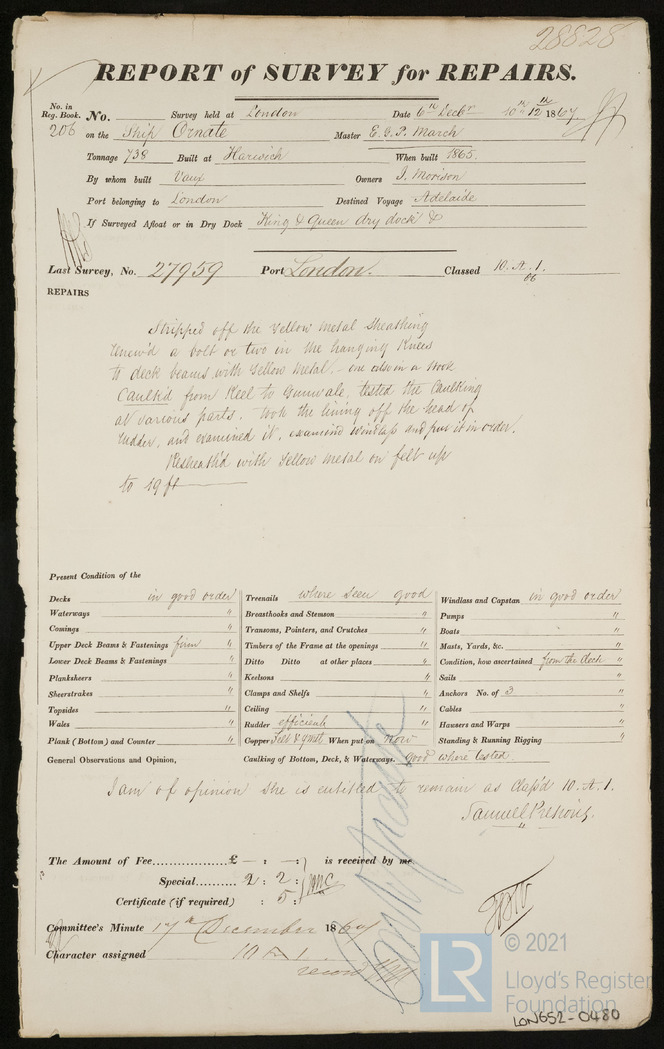 28828
REPORT of SURVEY for REPAIRS.
No. in
Reg. Book.
No. Survey held at London Date 6th Decbr 10th 12th 1867
206 on the Ship Ornate Master E. G. P. March
Tonnage 738 Built at Harwich When built 1865.
By whom built Vaux Owners J. Morison
Port belonging to London Destined Voyage Adelaide
If Surveyed Afloat or in Dry Dock King & Queen dry dock &
Last Survey, No. 27959 Port London. Classed 10. A. 1.
66
REPAIRS
Stripped off the Yellow Metal Sheathing
Renew'd a bolt or two in the hanging Knees
to deck beams with Yellow Metal. - one also in a Hook
Caulk'd from Keel to Gunwale, tested the Caulking
at various parts. Took the lining off the head of
rudder, and examined it, examined windlass and put it in order.
Resheath'd with Yellow Metal on felt up
to 19 ft
Present Condition of the
Decks in good order
Waterways "
Comings "
Upper Deck Beams & Fastenings firm "
Lower Deck Beams & Fastenings "
Planksheers "
Sheerstrakes "
Topsides "
Wales "
Plank (Bottom) and Counter "
Treenails where seen good
Breasthooks and Stemson "
Transoms, Pointers, and Crutches "
Timbers of the Frame at the openings "
Ditto Ditto at other places "
Keelsons "
Clamps and Shelfs "
Ceiling "
Rudder efficient
Copper Felt & Y Met When put on Now
Windlass and Capstan in good order
Pumps "
Boats "
Masts, Yards, &c. "
Condition, how ascertained from the deck "
Sails "
Anchors No. of 3 "
Cables "
Hawsers and Warps "
Standing & Running Rigging "
General Observations and Opinion, Caulking of Bottom, Deck, & Waterways. good where tested.
I am of opinion she is entitled to remain as Class'd 10. A. 1.
Samuell Pretious.
The Amount of Fee £ — : — : is received by me
Special 2 : 2 :
Certificate (if required) : 5 :
Committee's Minute 17th December 1867
Character assigned 10 A 1
LR
© 2021
Lloyd's Register
Foundation
LON652-0480